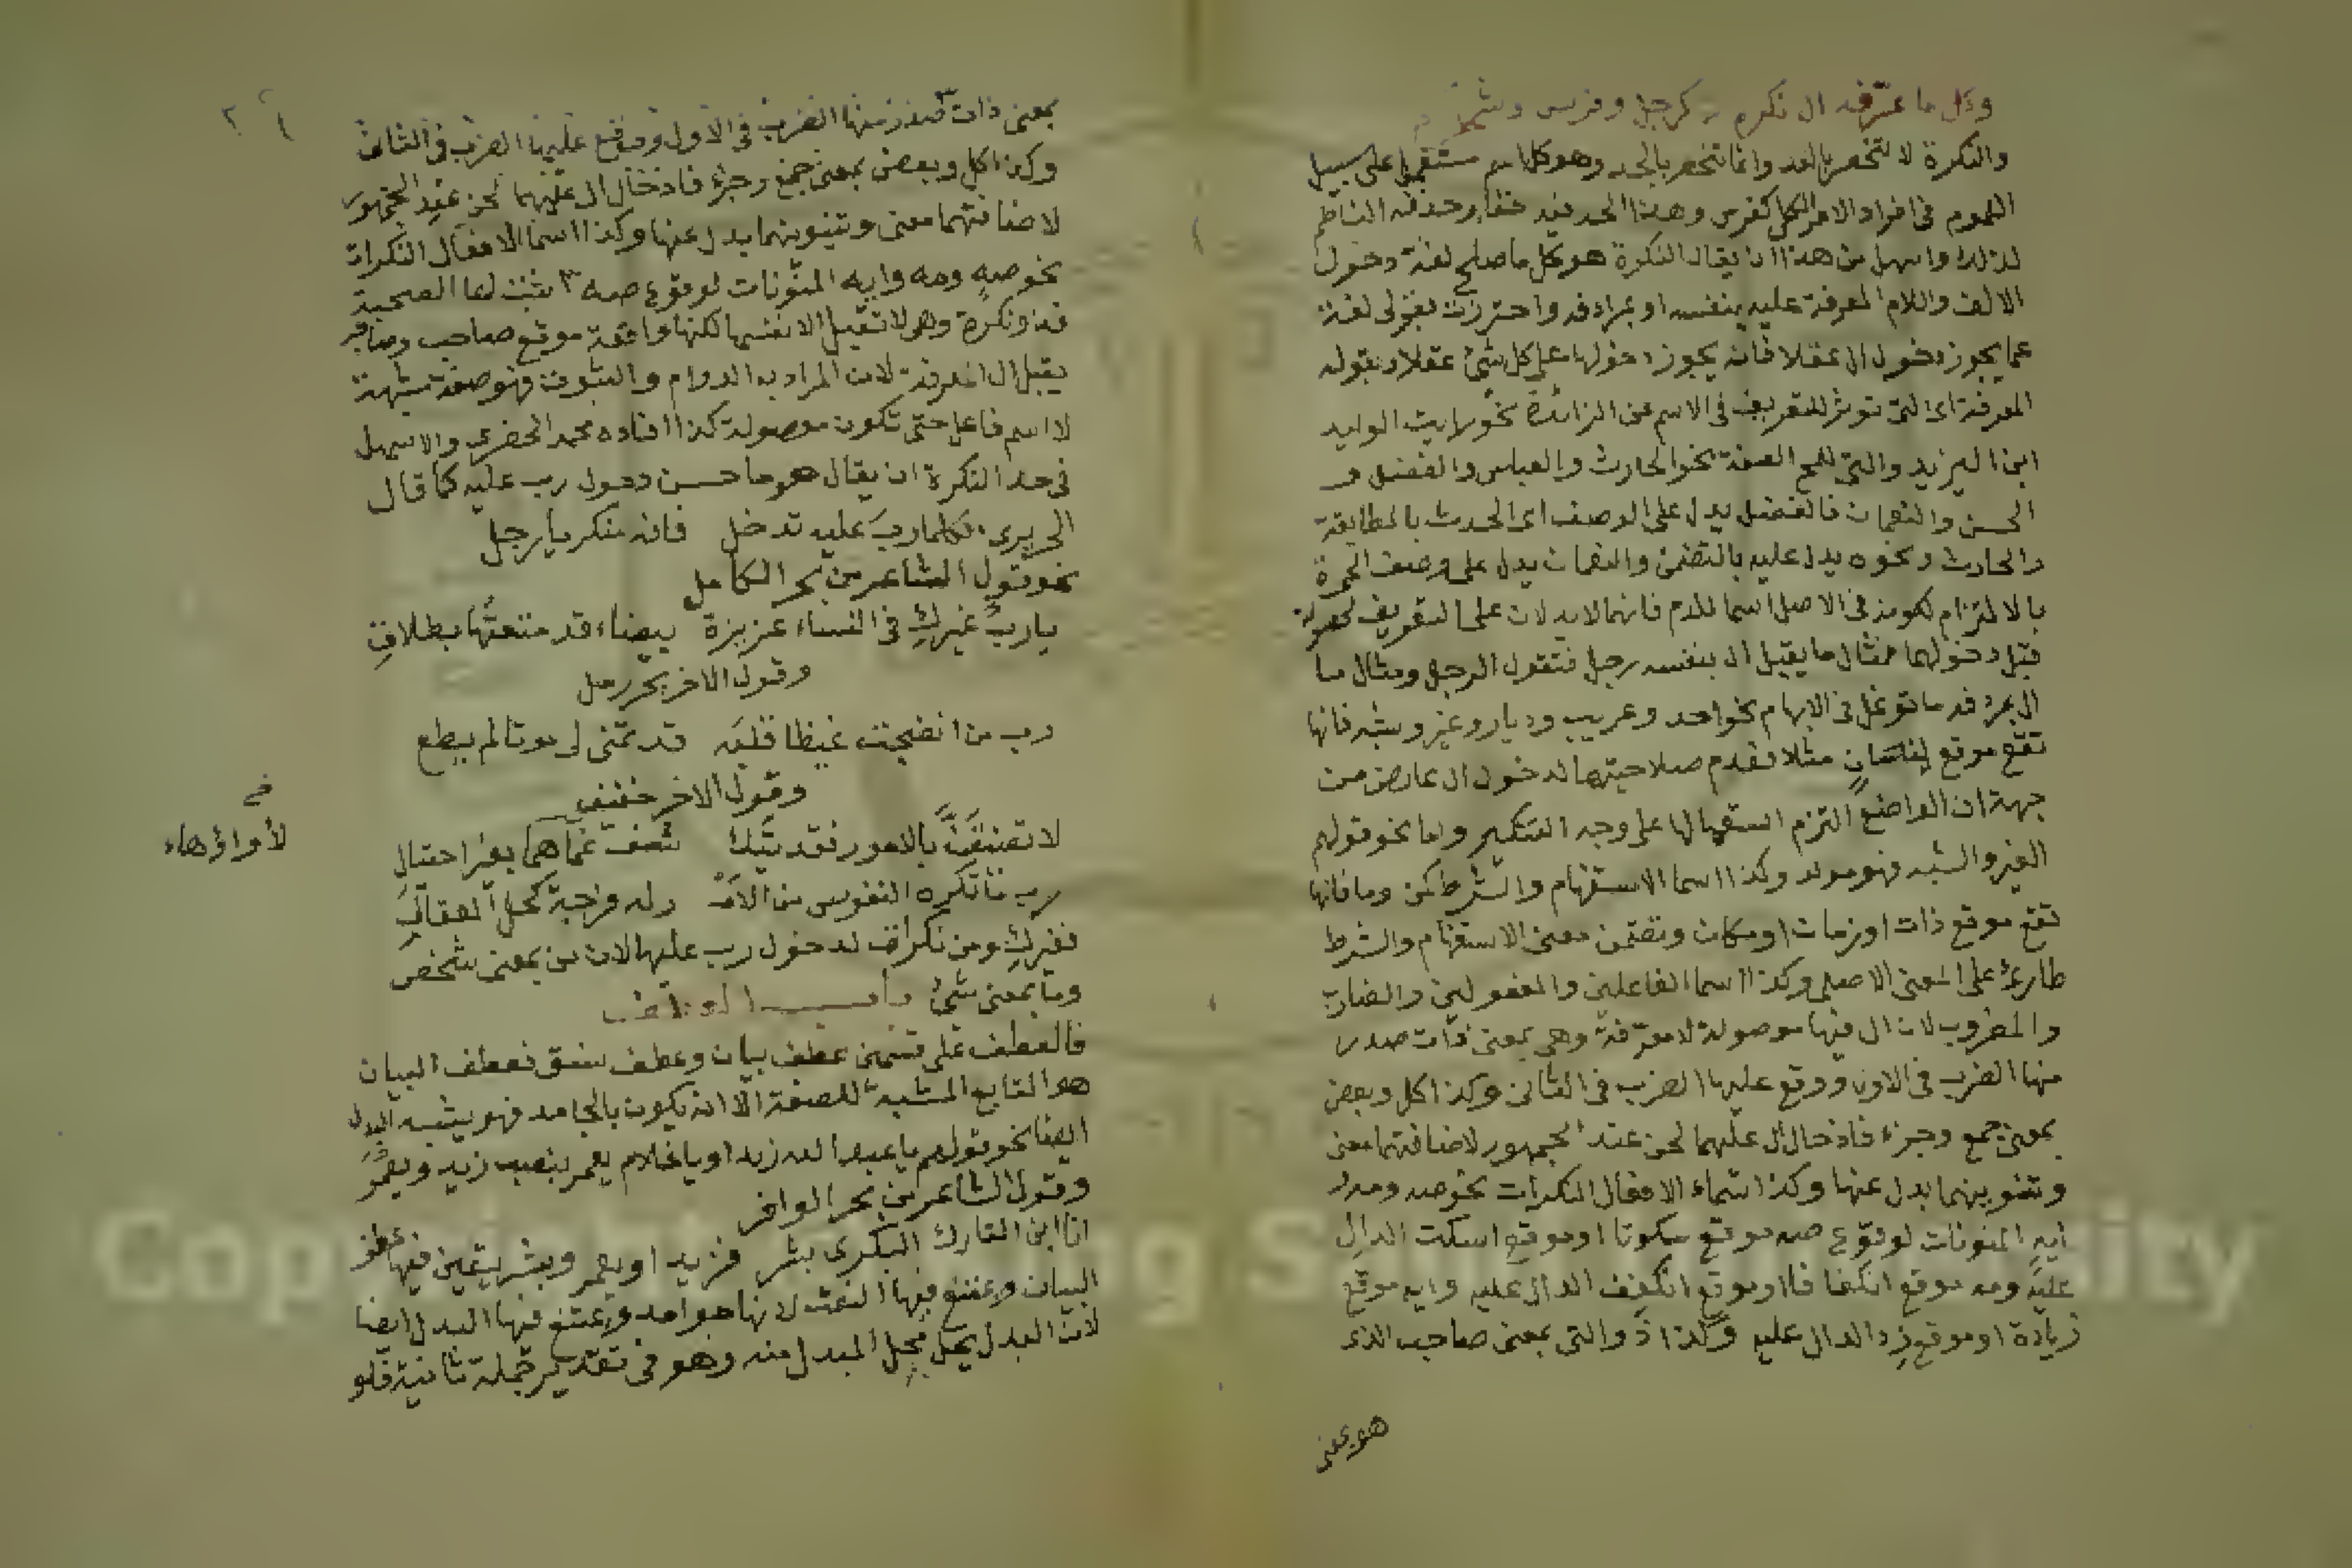 وكل ما عرفه ال نكره كرجل وفرس
والنكرة لا تنحصر بالعد وانما تنحصر بالحد وهو كل اسم مستعمل على سبيل
العموم في افراد الامر الكلي كفرس وهذا الحد فيه خفا وحذفه الناظم
لذلك واسهل من هذا ان يقال النكرة هو كل ما صلح لغة دخول
الالف واللام المعرفة عليه بنفسه او بمرادفه واحترزت بقولي لغة
عما يجوز دخول ال عقلا فانه يجوز دخولها على كل شئ عقلا وبقوله
المعرفة اى التي تؤثر التعريف في الاسم عن الزائدة نحو رايت الوليد
ابن اليزيد والتي للمح الصفة نحو الحارث والعباس والفضل و
الحسن والنعمان فالفضل يدل على الوصف اى الحدث بالمطابقة
والحارث ونحوه يدل عليه بالتضمن والنعمان يدل على وصف الحمرة
بالالتزام لكونه في الاصل اسما للدم فانهما لا يدلان على التعريف لحصوله
قبل دخولهما فمثال ما يقبل ال بنفسه رجل فتقول الرجل ومثال ما
ال بمرادفه ما توغل في الابهام نحو احد وعريب وديار وغير وشبه فانها
تقع موقع انسان مثلا فعدم صلاحيتها لدخول ال عارض من
جهة ان الواضع التزم استعمالها على وجه التنكير واما نحو قولهم
الغير والشبه فهو مولد وكذا اسما الاستفهام والشرط كمن وما فانها
تقع موقع ذات او زمان او مكان وتضمن معنى الاستفهام والشرط
طارئ على المعنى الاصلي وكذا اسما الفاعلين والمفعولين والضارب
والمضروب لان ال فيها موصولة لا معرفة وهى بمعنى ذات صدر
منها الضرب في الاول ووقع عليها الضرب في الثانى وكذا كل وبعض
بمعنى جمع وجزء فادخال ال عليهما لحن عند الجمهور لاضافتهما معنى
وتنوينهما بدل عنها وكذا اسماء الافعال النكرات نحو صه ومه و
ايه المنونات لوقوع صه موقع سكوتا او موقع اسكت الدال
عليه ومه موقع انكفافا او موقع انكفف الدال عليه وايه موقع
زيادة او موقع زد الدال عليه وكذا ذو التى بمعنى صاحب الذى
هو بمعنى
بمعنى ذات صدر منها الضرب في الاول ووقع عليها الضرب في الثانى
وكذا كل وبعض بمعنى جمع وجزء فادخال ال عليهما لحن عند الجمهور
لاضافتهما معنى وتنوينهما بدل عنها وكذا اسما الافعال النكرات
نحو صه ومه وايه المنونات لوقوع صه
فذو نكرة وهى لا تقبل ال بنفسها لكنها واقعة موقع صاحب وصاحب
يقبل ال المعرفة لان المراد به الدوام والثبوت فهو صفة مشبهة
لا اسم فاعل حتى تكون موصولة كذا افاده محمد الخضري والاسهل
في حد النكرة ان يقال هو ما حسن دخول رب عليه كما قال
الحريري فكلما رب عليه تدخل فانه منكر يا رجل
نحو قول الشاعر من بحر الكامل
يا رب غيرك في النساء عزيزة بيضاء قد متعتها بطلاق
وقول الاخر بحر رمل
رب من انضجت غيظا قلبه قد تمنى لى موتا لم يطع
وقول الاخر خفيف
لا تضيقن بالامور فقد تكـ شف غماهما بغير احتيال
رب ما تكره النفوس من الامر وله فرجة كحل العقال
فغيرك ومن نكرات لدخول رب عليها لان من بمعنى شخص
وما بمعنى شئ باب العطف
فالعطف على قسمين عطف بيان وعطف نسق فعطف البيان
هو التابع المشبه للصفة الا انه يكون بالجامد فهو يشبه البدل
ايضا نحو قولهم يا عبد الله زيدا او يا غلام يعمر بنصب زيد ويعمر
وقول الشاعر من بحر الوافر
انا ابن التارك البكرى بشر فزيد او يعمر وبشر يتعين فيها عطف
البيان ويمتنع فيها النعت لانها جوامد ويمتنع فيها البدل ايضا
لان البدل يحل محل المبدل منه وهو في تقدير جملة ثانية فلو
٢٤
لأواؤها
Copyright King Saud University